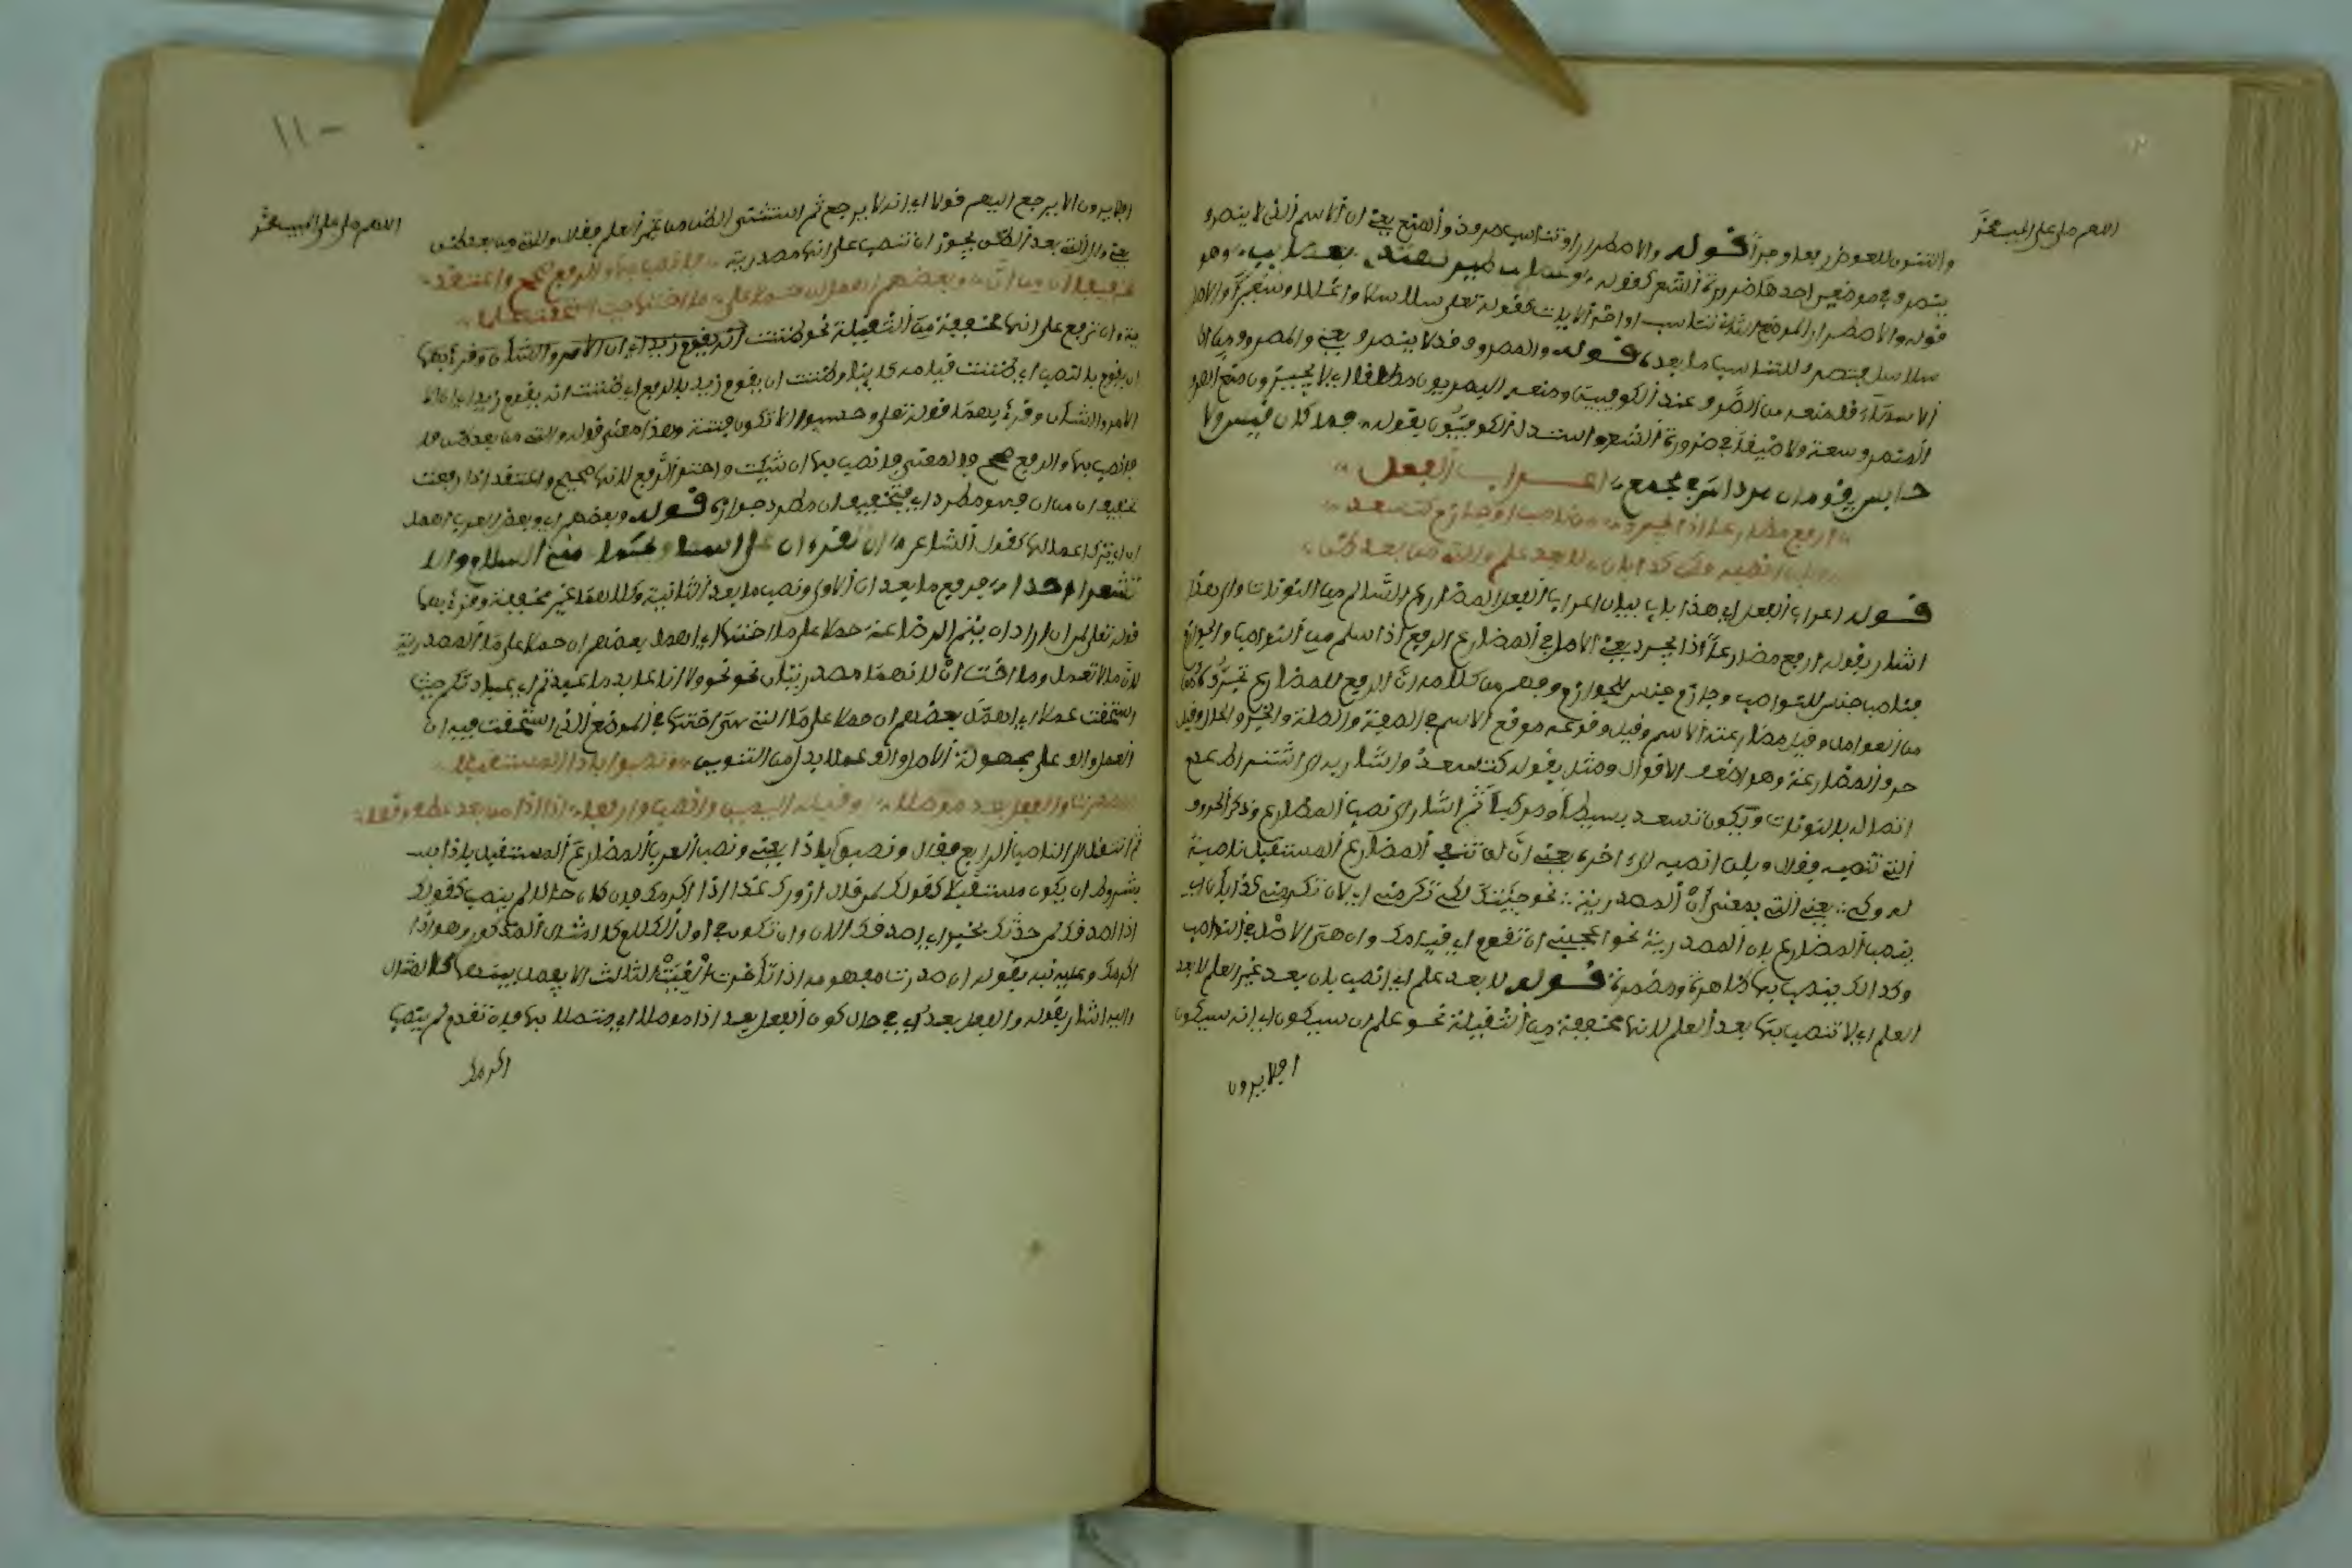 اللهم صل على الحبيب محمد
والتنوين للعوض رفعا وجرا قوله والاضطرار او تناسب صرف ذو المنع يعني ان الاسم الذي لا ينصرف
ينصرف في موضعين احدهما ضرورة الشعر كقوله عصائب طير تهتدي بعصائب وهو
قوله والاضطرار الموضع الثاني تناسب اواخر الآيات كقوله تعلى سلاسلا واغلالا وسعيرا والاصل
سلاسل فتصرف للتناسب ما بعده قوله والمصروف قد لا ينصرف يعني والمصروف من
الاسماء قد منعه من الصرف عند الكوفيين ومنعه البصريون مطلقا اي لا يجيزون منع الصرف
المنصرف سعة ولا ضيقا في ضرورة الشعر واستدل الكوفيون بقوله فما كان قيس ولا
حابس يفوقان مرداس في مجمع اعراب الفعل
ارفع مضارعا اذا يجرد من ناصب او جازم كتسعد
وبلن انصبه وكي كذا بان لا بعد علم والتي من بعد ظن
قوله اعراب الفعل اي هذا باب بيان اعراب الفعل المضارع السالم من النونات والى هذا
اشار بقوله ارفع مضارعا اذا يجرد يعني الاصل في المضارع الرفع اذا سلم من النواصب والجوازم
فناصب جنس للنواصب وجازم جنس للجوازم وفهم من كلامه ان الرفع للمضارع تجرده
من العوامل وقيل مضارعته الاسم وقيل وقوعه موقع الاسم في الصفة والصلة والخبر والحال وقيل
حروف المضارعة وهو اضعف الاقوال ومثل بقوله كتسعد واشار به الى اشتراط عدم
اتصاله بالنونات ويكون تسعد بسيطا ومركبا ثم اشار الى نصب المضارع وذكر الحروف
التي تنصبه فقال وبلن انصبه الى اخره يعني ان لن تنفي المضارع المستقبل ناصبة
له وكي يعني التي بمعنى ان المصدرية نحو جئتك لكي تكرمني اي لان تكرمني كذا بان اي
ينصب المضارع بان المصدرية نحو اعجبني ان تقوم اي قيامك وان هي الاصل في النواصب
وكذالك ينصب بها ظاهرة ومضمرة قوله لا بعد علم اي انصب بان بعد غير العلم لا بعد
العلم اي لا تنصب بها بعد العلم لانها مخففة من الثقيلة نحو علم ان سيكون اي انه سيكون
افلا يرون
١١٠
اللهم صل على الحبيب محمد
افلا يرون الا يرجع اليهم قولا اي انه لا يرجع ثم استثنى الظن من غير العلم فقال والتي من بعد ظن
يعني وان التي بعد الظن يجوز ان تنصب على انها مصدرية فانصب بها والرفع صحح واعتقد
تخفيفها من ان وبعضهم اهمل ان حملا على ما اختها حيث استحقت عملا
ية وان ترفع على انها مخففة من الثقيلة نحو ظننت ان يقوم زيد اي ان الامر والشأن وقرئ بهما
ان يقوم بالنصب اي ظننت قيامه وظننت ان يقوم زيد بالرفع اي ظننت انه يقوم زيد
الامر والشأن وقرئ بهما قوله تعلى وحسبوا الا تكون فتنة وهذا معنى قوله والتي من بعد ظن
فانصب بها والرفع صحح والمعنى فانصب بها ان شيت واختر الرفع لانها صحيح واعتقد اذا رفعت
تخفيفها من ان فهو مطرد اي فتخفيف ان مطرد جوازه قوله وبعضهم اي وبعض العرب اهمل
ان اي ترك اعمالها كقول الشاعر ان تقرءان على اسماء ويحكما مني السلام والا
تشعرا احدا فرفع ما بعد ان الاولى ونصب ما بعد الثانية وكلاهما غير مخففة وقرئ بهما
قوله تعلى لمن اراد ان يتم الرضاعة حملا على ما اختها اي اهمل بعضهم ان حملا على ما المصدرية
لان ما لا تعمل وما اخت ان لانهما مصدريتان نحو ولا انا عابد ما عبدتم اي عبادتكم حيث
استحقت عملا اي اهمل بعضهم ان حملا على ما التي هي اختها في الموضع الذي استحقت فيه ان
العمل والف عملا بدل من التنوين ونصبوا باذن المستقبلا
ان صدرت والفعل بعد موصلا او قبله اليمين وانصب وارفعا اذا اذن من بعد عطف وقعا
ثم انتقل الى الناصب الرابع فقال ونصبوا باذا يعني ونصب العرب المضارع المستقبل باذا
بشروط ان يكون مستقبلا كقولك لمن قال ازورك غدا اذا اكرمك فان كان حالا لم ينصب كقولك
اذا اصدقك لمن حدثك بخبر اي اصدقك الان وان تكون في اول الكلام كالمثال المذكور وهو اذا
اكرمك وعليه نبه بقوله ان صدرت مفهومه اذا تأخرت الغيت الثالث الا يفصل بينهما كالمثال
واليه اشار بقوله والفعل بعد اي في حال كون الفعل بعد اذا موصلا اي متصلا بها فان تقدم لم ينصب
اكرمك